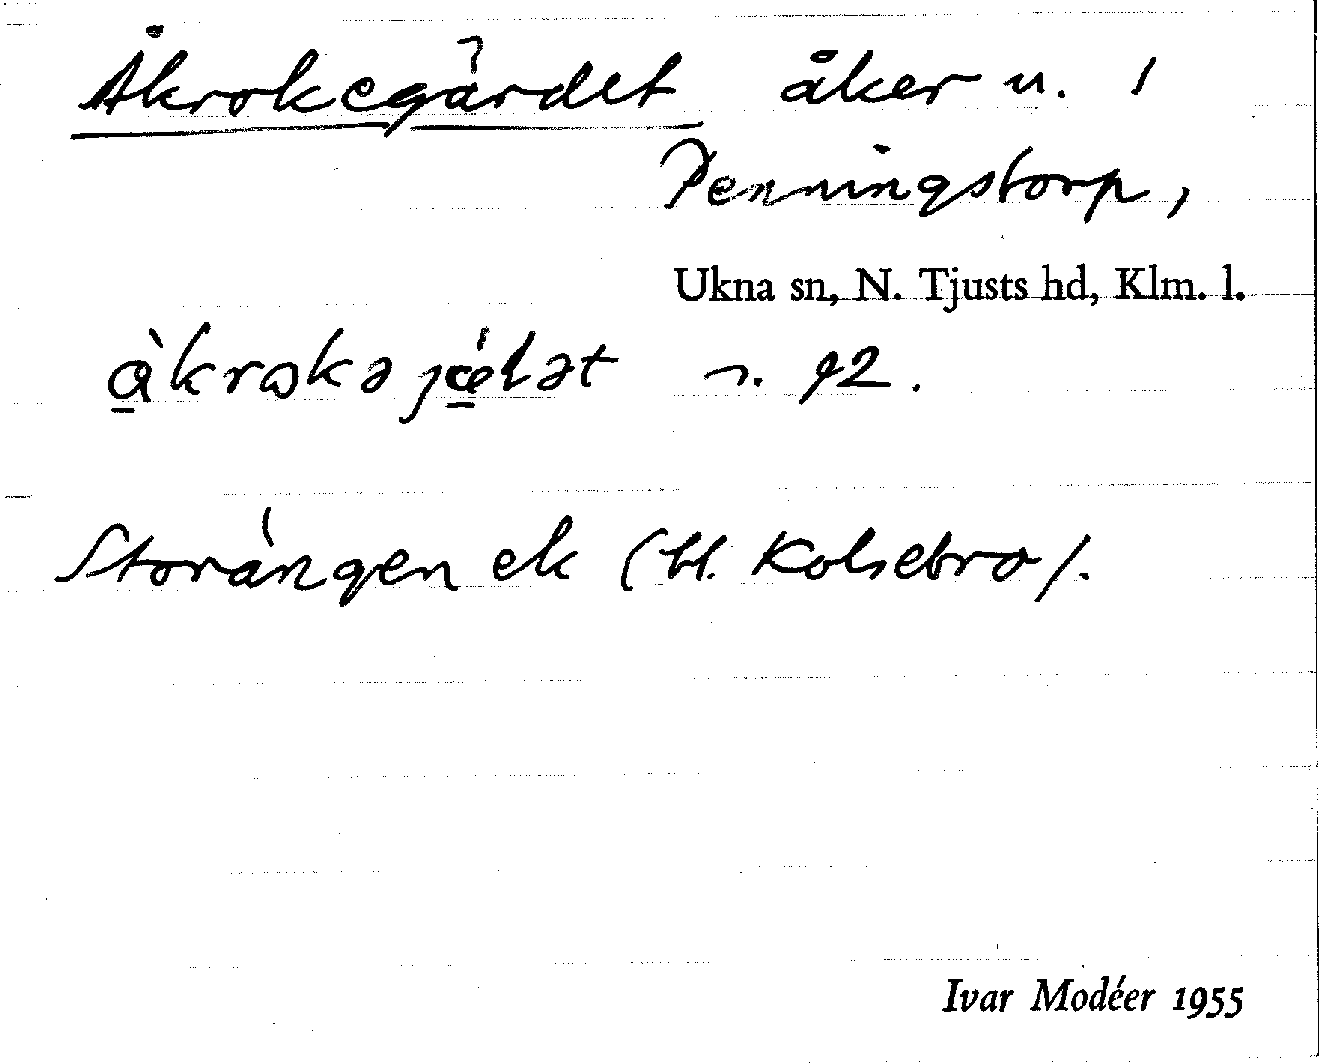 Åkrokegärdet åker u. 1
Penningstorp,
Ukna sn, N. Tjusts hd, Klm. l.
n. 92.
Storängen ek (bl. Kolsebro).
Ivar Modéer 1955